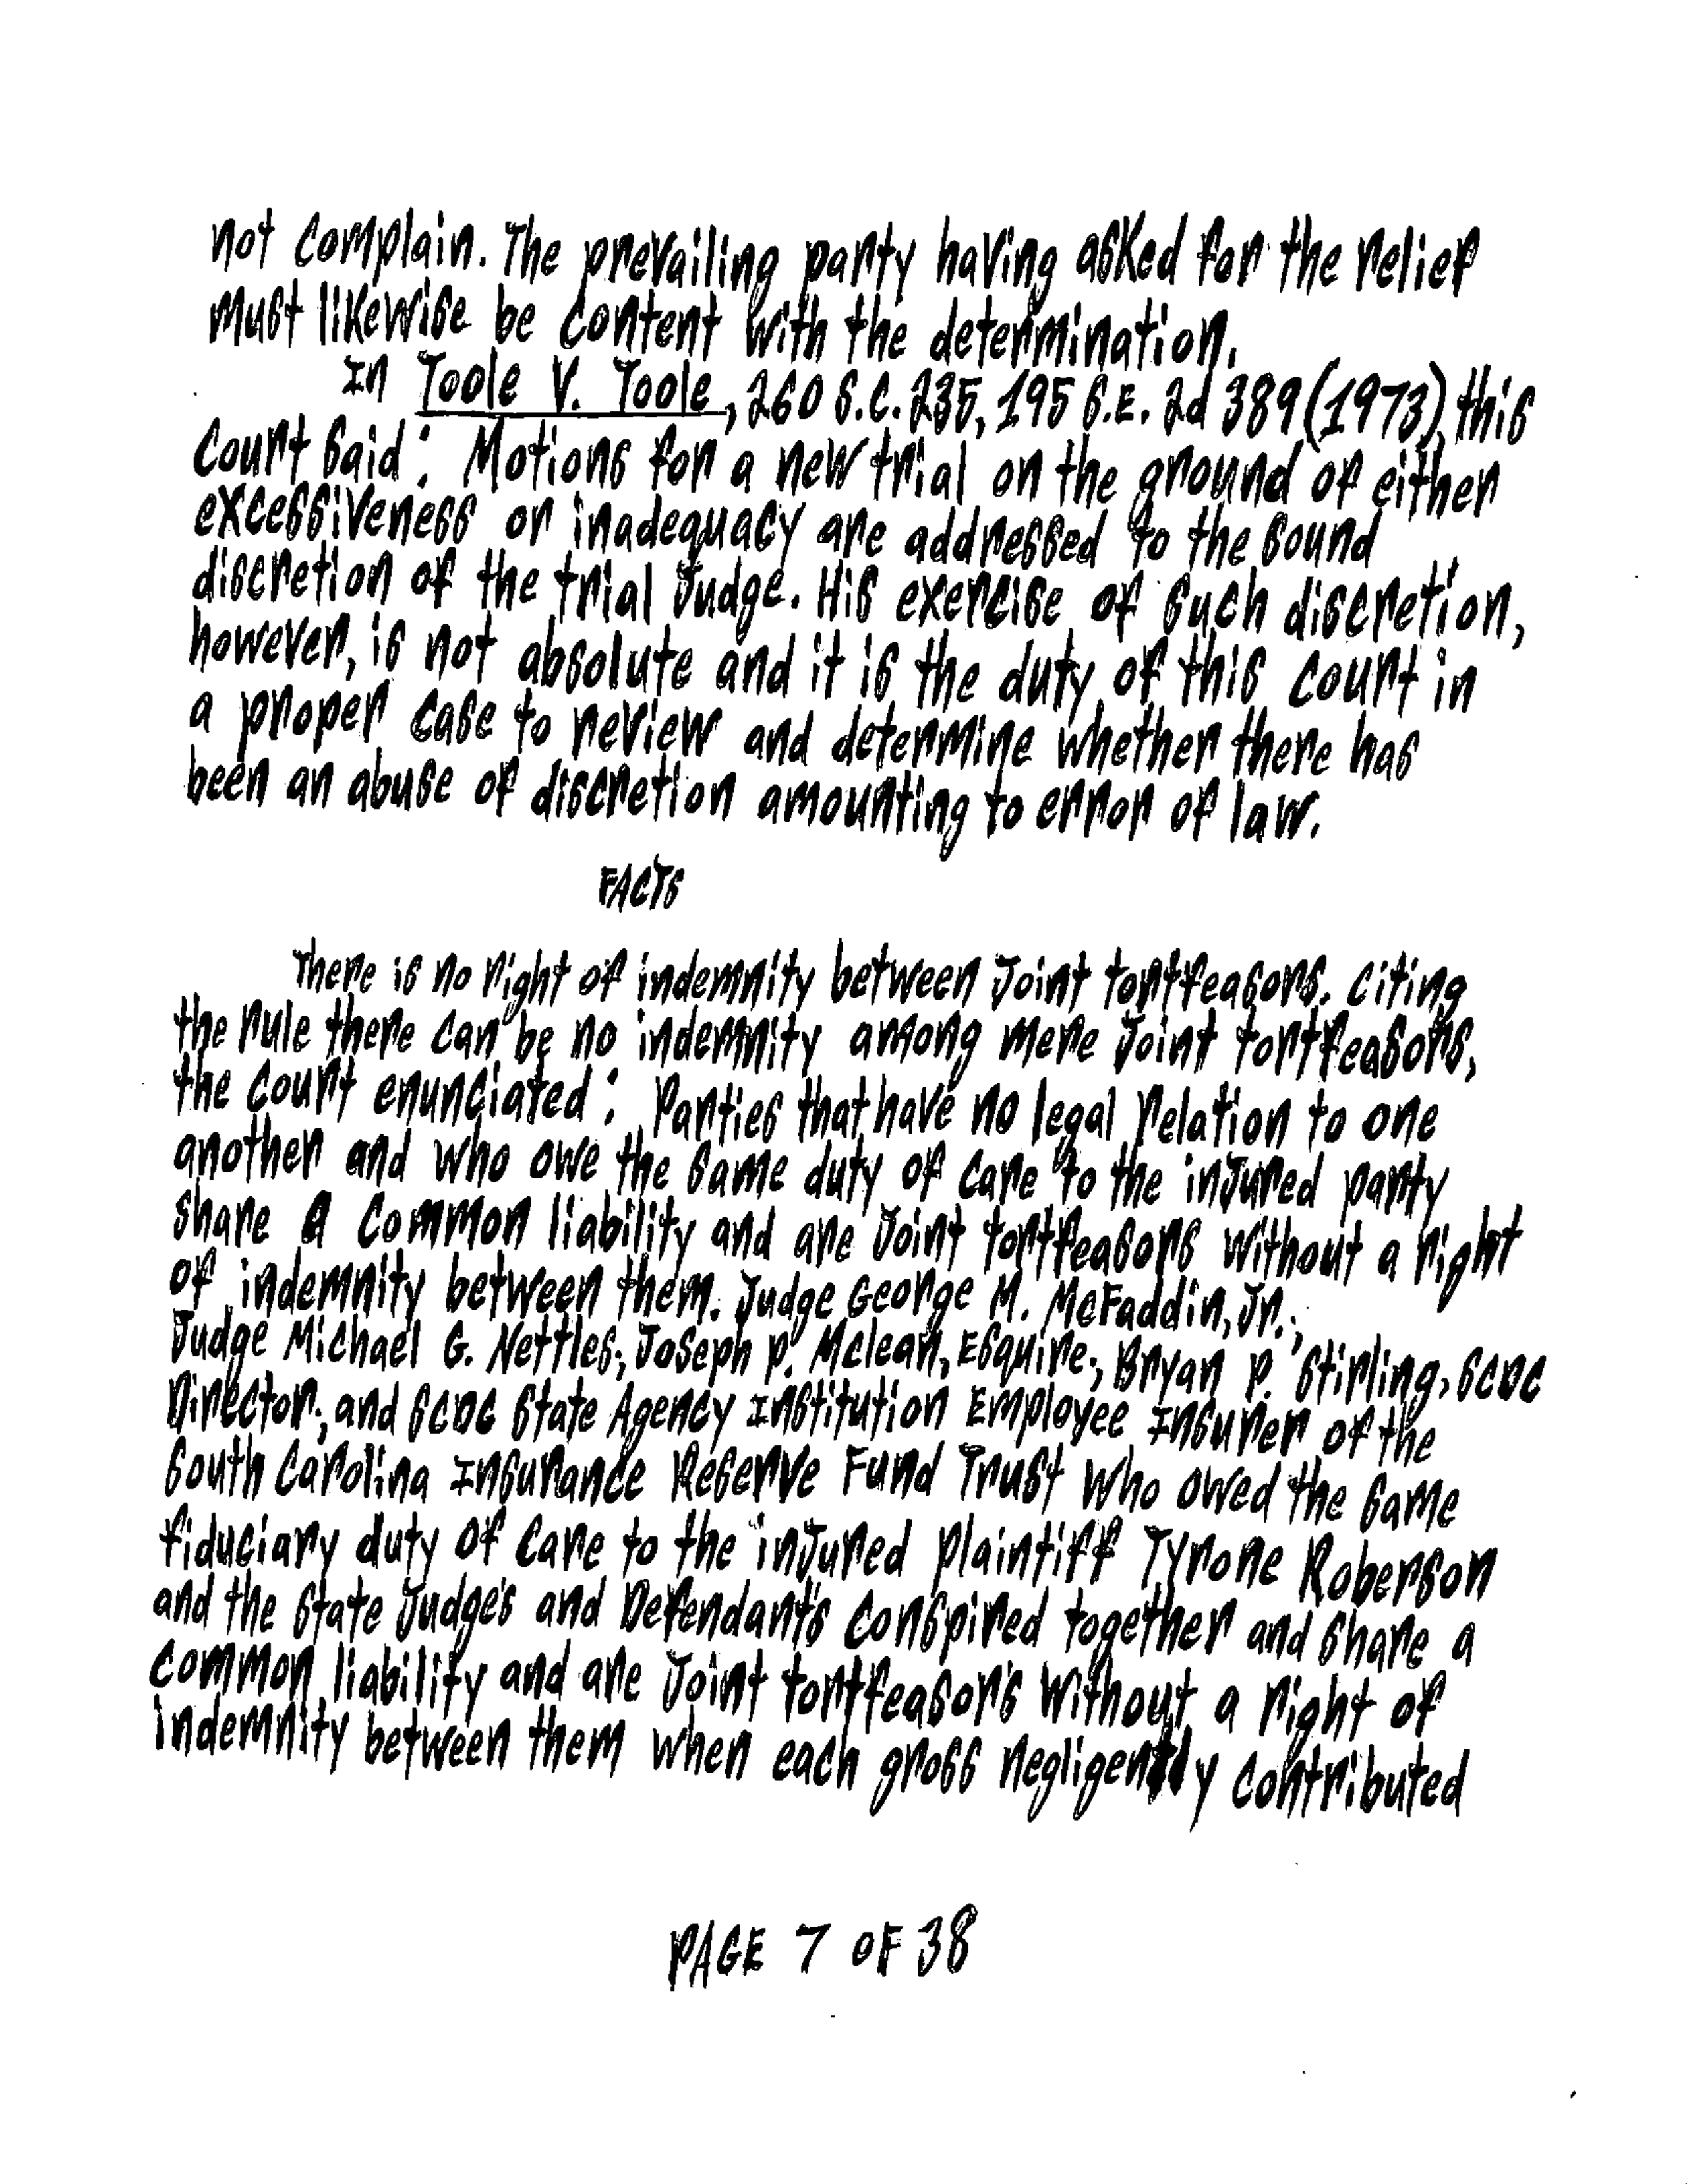 not complain. The prevailing party having asked for the relief
must likewise be content with the determination.
In Toole V. Toole, 260 S.C. 235, 195 S.E. 2d 389 (1973), this
Court said: Motions for a new trial on the ground of either
excessiveness or inadequacy are addressed to the sound
discretion of the trial Judge. His exercise of such discretion,
however, is not absolute and it is the duty of this Court in
a proper case to review and determine whether there has
been an abuse of discretion amounting to error of law.
FACTS
There is no right of indemnity between Joint tortfeasors. Citing
the rule there can be no indemnity among mere Joint tortfeasors,
the Court enunciated: Parties that have no legal relation to one
another and who owe the same duty of care to the inJured party
share a common liability and are Joint tortfeasors without a right
of indemnity between them. Judge George M. McFaddin, Jr.;
Judge Michael G. Nettles; Joseph P. Mclean, Esquire; Bryan P. Stirling, SCDC
Director; and SCDC State Agency Institution Employee Insurer of the
South Carolina Insurance Reserve Fund Trust who owed the same
fiduciary duty of care to the inJured plaintiff Tyrone Roberson
and the State Judge's and Defendant's conspired together and share a
common liability and are Joint tortfeasor's without a right of
indemnity between them when each gross negligently contributed
PAGE 7 OF 38